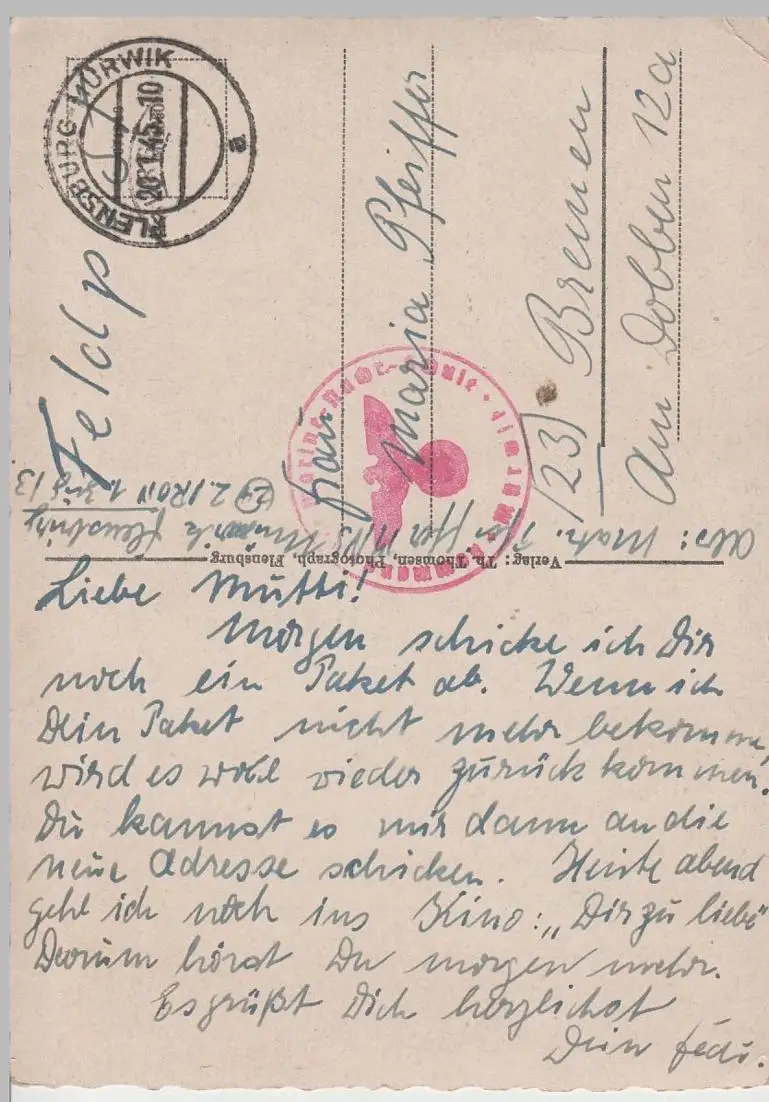 FLENSBURG-MÜRWIK
20.1.45.-10
a
Feldp
Frau
Maria Pfeiffer
(23) Bremen
Am Dobben 12a
Abs: Matr.
Verlag: Th. Thomsen, Photograph, Flensburg
Liebe Mutti!
Morgen schicke ich Dir
noch ein Paket ab. Wenn ich
Dein Paket nicht mehr bekomme,
wird es wohl wieder zurück kommen.
Du kannst es mir dann an die
neue Adresse schicken. Heute abend
geh ich noch ins Kino: „Dir zu liebe"
Darum hörst Du morgen mehr.
Es grüßt Dich herzlichst
Dein